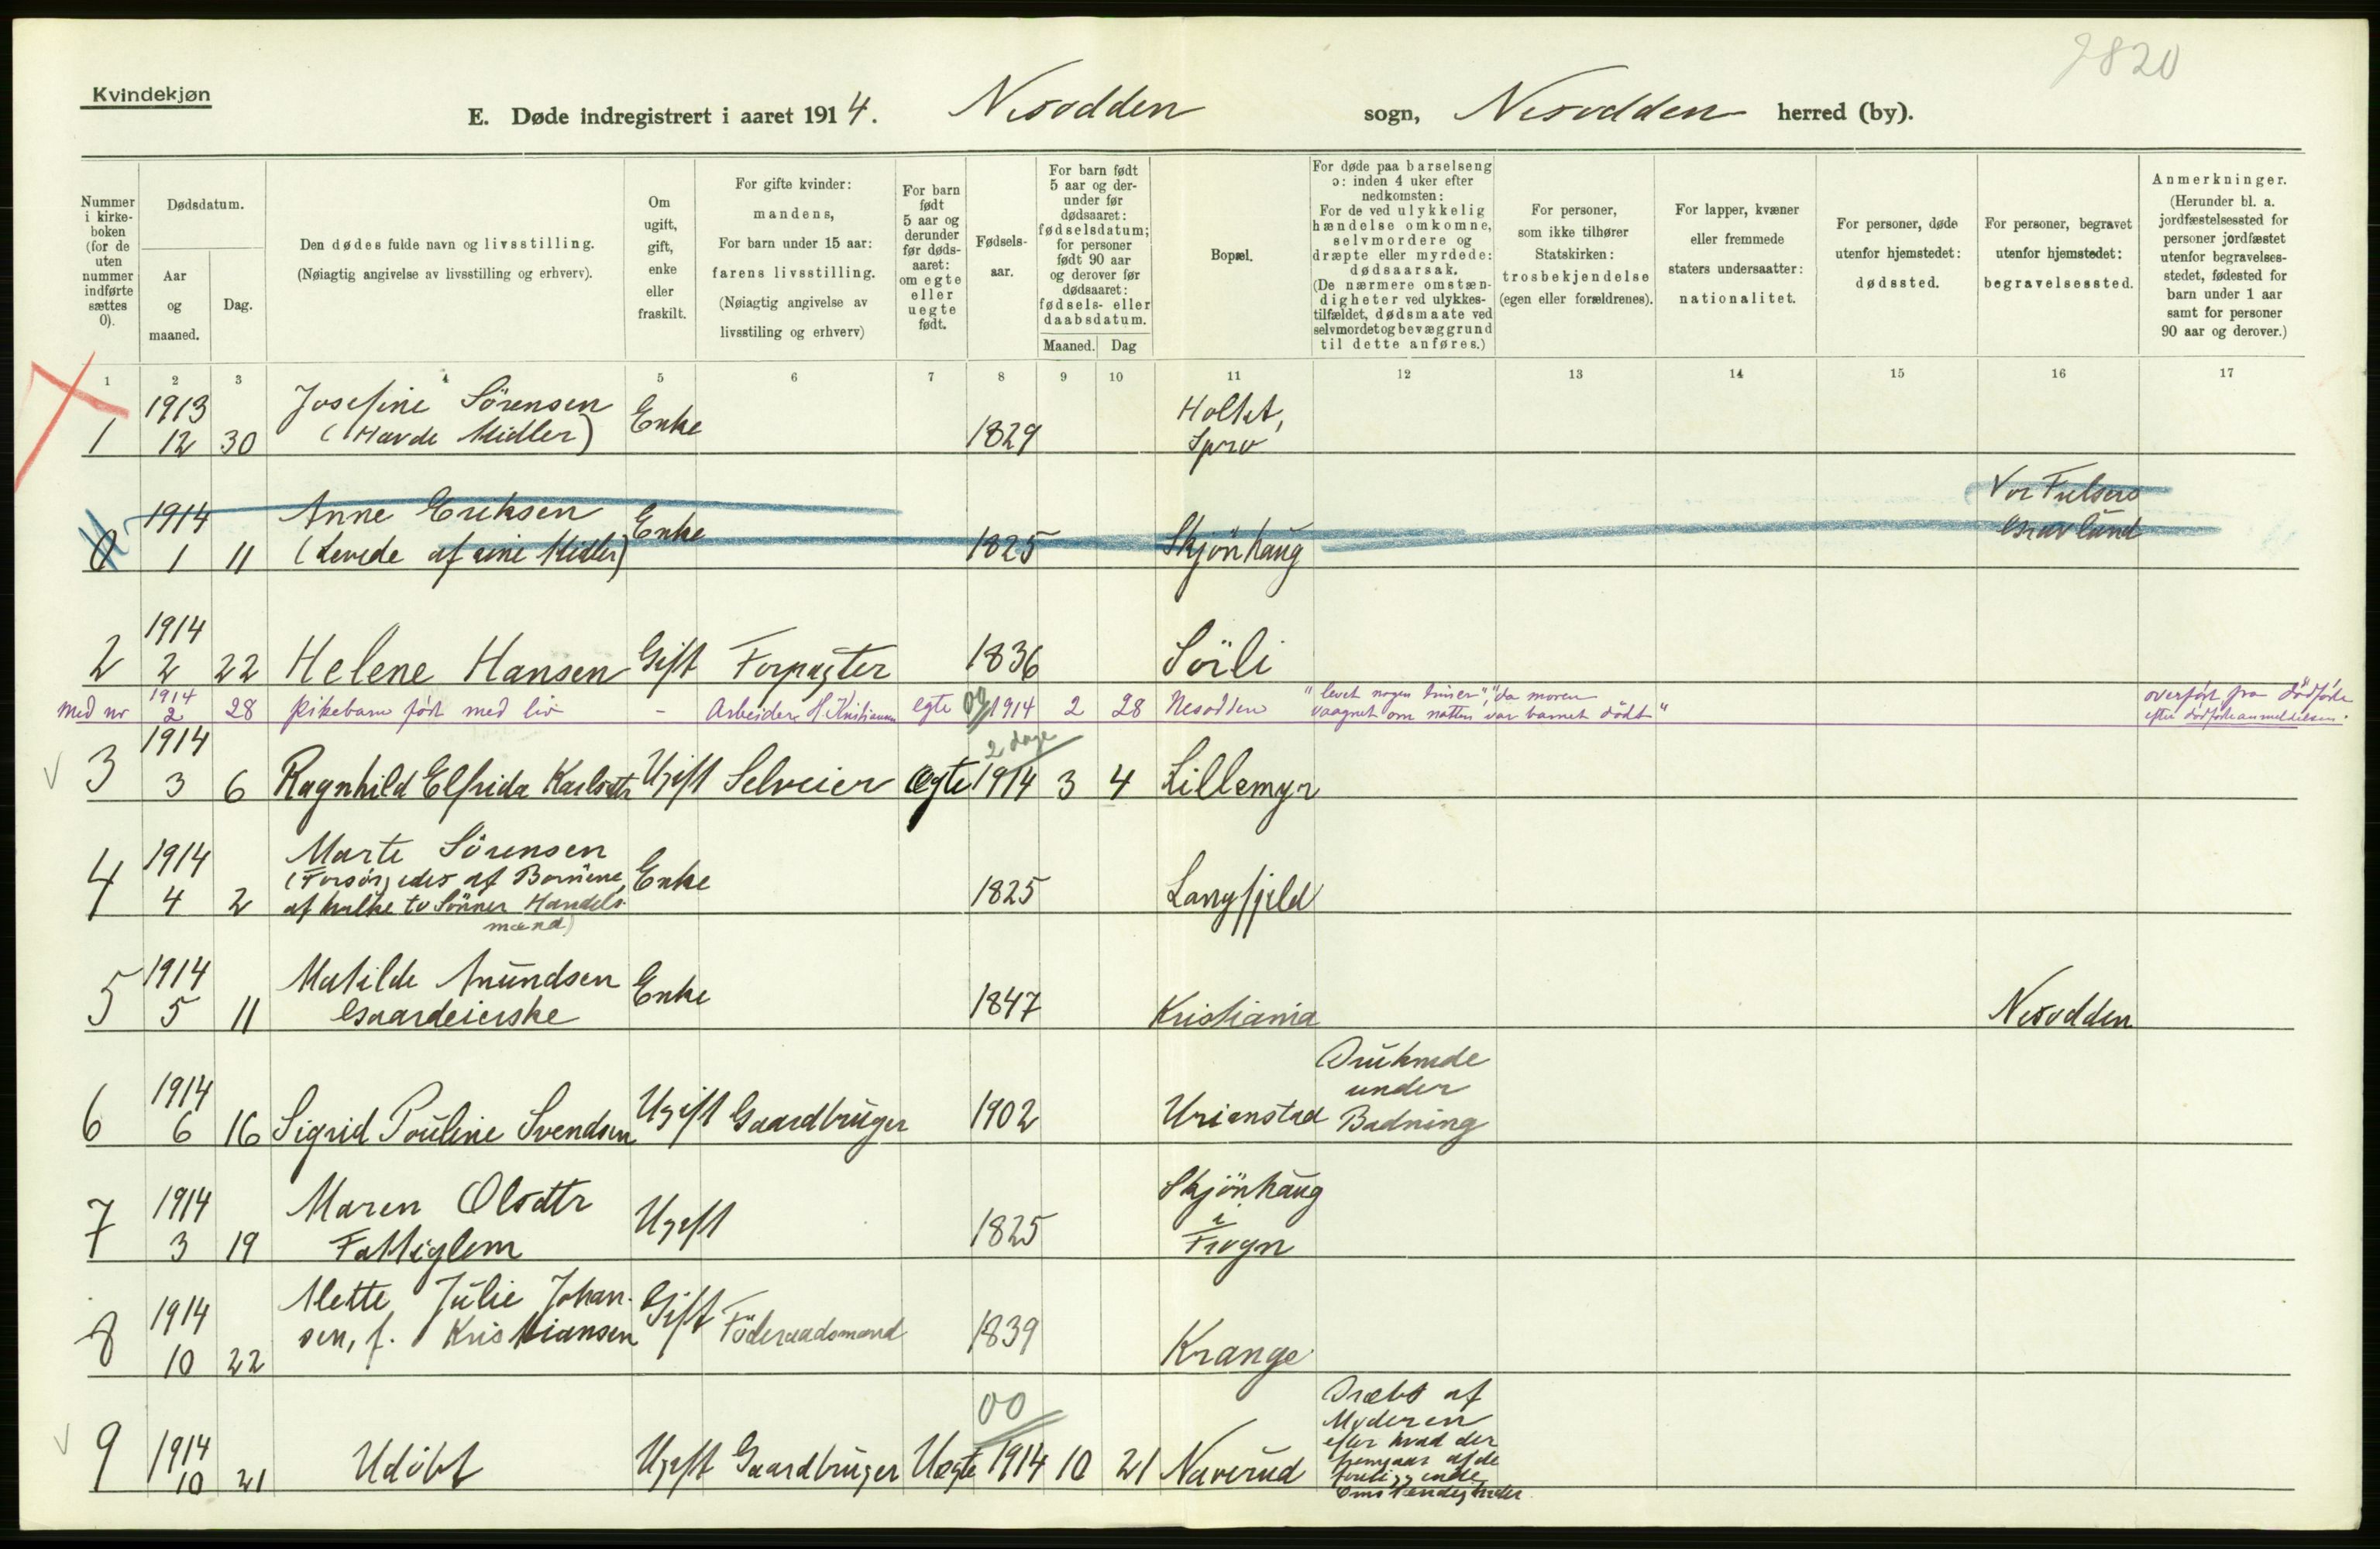 2820
Kvindekjøn
E. Døde indregistrert i aaret 1914. Nesodden sogn, Nesodden herred (by).
Nummer i kirke-boken (for de uten nummer indførte sættes 0).
Dødsdatum.
Aar og maaned.
Dag.
Den dødes fulde navn og livsstilling.
(Nøiagtig angivelse av livsstilling og erhverv).
Om ugift, gift, enke eller fraskilt.
For gifte kvinder: mandens,
For barn under 15 aar: farens livsstilling.
(Nøiagtig angivelse av livsstiling og erhverv)
For barn født 5 aar og derunder før døds-aaret: om egte eller uegte født.
Fødsels-aar.
For barn født 5 aar og der-under før dødsaaret: fødselsdatum; for personer født 90 aar og derover før dødsaaret: fødsels- eller daabsdatum.
Maaned. Dag
Bopæl.
For døde paa barselseng ɔ: inden 4 uker efter nedkomsten:
For de ved ulykkelig hændelse omkomne, selvmordere og dræpte eller myrdede: dødsaarsak.
(De nærmere omstæn-digheter ved ulykkes-tilfældet, dødsmaate ved selvmordet og bevæggrund til dette anføres.)
For personer, som ikke tilhører Statskirken: trosbekjendelse (egen eller forældrenes).
For lapper, kvæner eller fremmede staters undersaatter: nationalitet.
For personer, døde utenfor hjemstedet: dødssted.
For personer, begravet utenfor hjemstedet: begravelsessted.
Anmerkninger.
(Herunder bl. a. jordfæstelsessted for personer jordfæstet utenfor begravelses-stedet, fødested for barn under 1 aar samt for personer 90 aar og derover.)
1 2 3 4 5 6 7 8 9 10 11 12 13 14 15 16 17
1 1913 12 30 Josefine Sörensen (Havde Midler) Enke 1829 Holtet, Spro
0 1914 1 11 Anne Eriksen (Levede af sine Midler) Enke 1825 Skjönhaug Vor Frelsers Gravlund
2 1914 2 22 Helene Hansen Gift Forpagter 1836 Söili
Med nr 1914 2 28 pikebarn født med liv - Arbeider H. Kristiansen egte 00 1914 2 28 Nesodden "levet nogen timer", "da moren vaagnet om natten var barnet dödt" overført fra dödfødte efter dødfødteanmeldelsen.
3 1914 3 6 Ragnhild Elfrida Karlsdtr Ugift Selveier Ægte 2 dage 1914 3 4 Lillemyr
4 1914 4 2 Marte Sörensen (Forsörgedes af Børnene, af hvilke to Sönner Handels-mænd) Enke 1825 Langfjeld
5 1914 5 11 Matilde Anundsen Gaardeierske Enke 1847 Kristiania Nesodden
6 1914 6 16 Sigrid Pouline Svendsen Ugift Gaardbruger 1902 Urianstad Druknede under Badning
7 1914 3 19 Maren Olsdtr Fattiglem Ugift 1825 Skjönhaug i Frogn
8 1914 10 22 Mette Julie Johan-sen, f. Kristiansen Gift Föderaadsmand 1839 Krange
9 1914 10 21 Udöbt Ugift Gaardbruger Uægte 00 1914 10 21 Naverud Dræbt af Moderen efter hvad der fremgaar af de foreliggende Omstændigheder